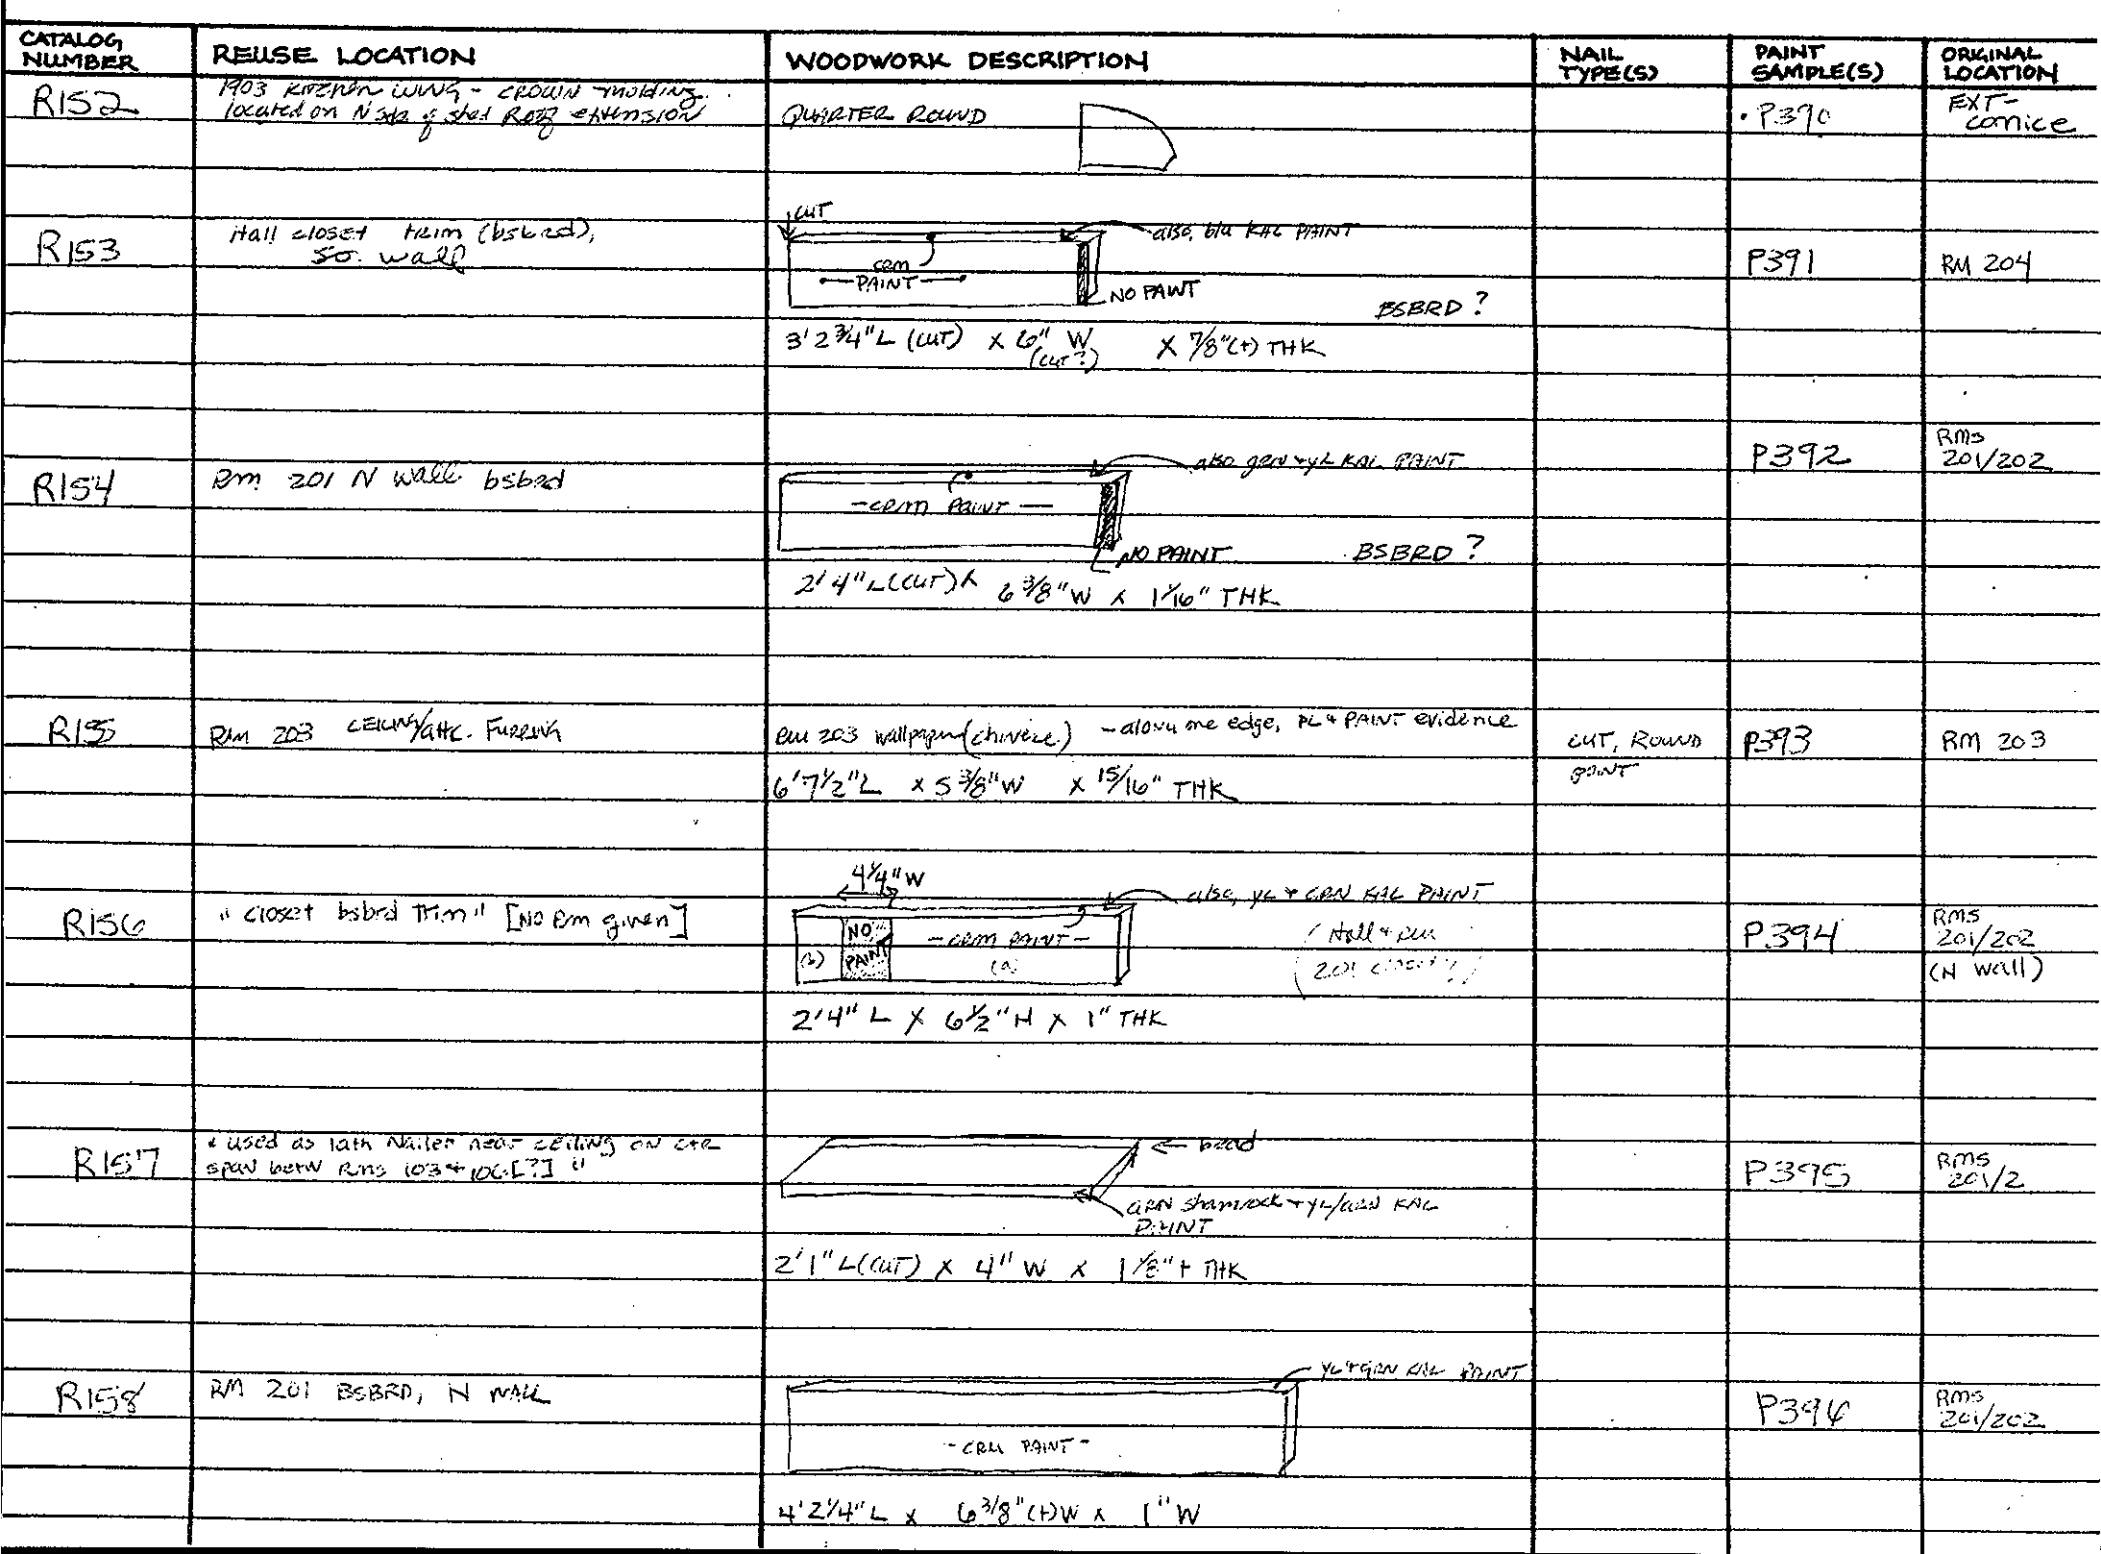 CATALOG NUMBER
REUSE LOCATION
WOODWORK DESCRIPTION
NAIL TYPE(S)
PAINT SAMPLE(S)
ORIGINAL LOCATION
R152
1903 KITCHEN WING - CROWN molding
located on N side of shed Roof extension
QUARTER ROUND
P390
EXT-
cornice
R153
Hall closet trim (bsbrd),
So. wall
CUT
also, blu KAL PAINT
crm
PAINT
NO PAINT
BSBRD ?
3' 2 3/4" L (CUT) X 6" W X 7/8"(+) THK
(cut?)
P391
RM 204
R154
Rm 201 N wall bsbrd
also grn + yL KAL PAINT
- crm PAINT -
NO PAINT
BSBRD ?
2' 4" L (CUT) X 6 3/8" W X 1 1/16" THK
P392
RMS
201/202
R155
RM 203 CEILING/attc. FURRING
RM 203 wallpaper - along one edge, PL + PAINT evidence
6' 7 1/2" L X 5 3/8" W X 15/16" THK
CUT, ROUND
POINT
P393
RM 203
R156
"closet bsbrd Trim" [NO Rm given]
4 1/4" W
also, yL + GRN KAL PAINT
NO
PAINT
- CRM PAINT -
(b)
(a)
(Hall + RM
201 closet?)
2' 4" L X 6 1/2" H X 1" THK
P394
RMS
201/202
(N wall)
R157
"used as lath Nailer near ceiling on ctr
span betw Rms 103 + 106 [?]"
← bead
GRN shamrock + yL/GRN KAL
PAINT
2' 1" L (CUT) X 4" W X 1 1/8" + THK
P395
RMS
201/2
R158
RM 201 BSBRD, N WALL
YL + GRN KAL PAINT
- CRM PAINT -
4' 2 1/4" L X 6 3/8" (+) W X 1" W
P396
RMS
201/202